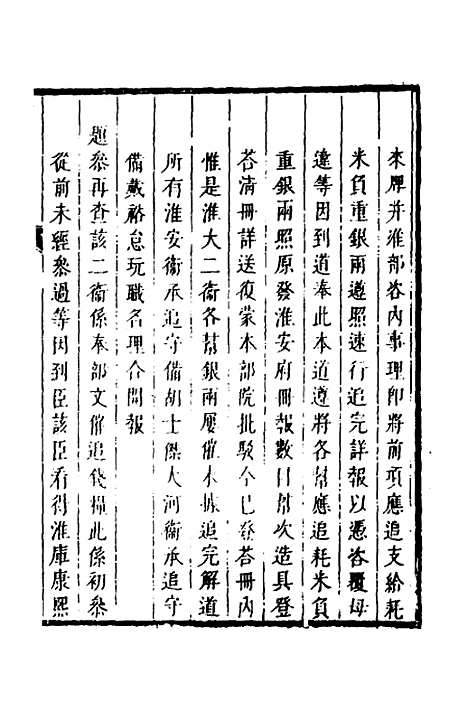 來犀并准部咨內事理卽將前項應追支給耗
米負重銀兩遵照速行追完詳報以憑咨覆毋
違等因到道奉此本道遵將各幫應追耗米負
重銀兩照原發淮安府冊報數目幫次造具登
荅清冊詳送復蒙本部院批駁今已登荅冊內
惟是淮大二衛各幫銀兩屢催未據追完解道
所有淮安衛承追守備胡士傑大河衛承追守
備戴裕怠玩職名理合開報
題叅再查該二衛係奉部文催追錢糧此係初叅
從前未經叅過等因到臣該臣看得淮庫康熙